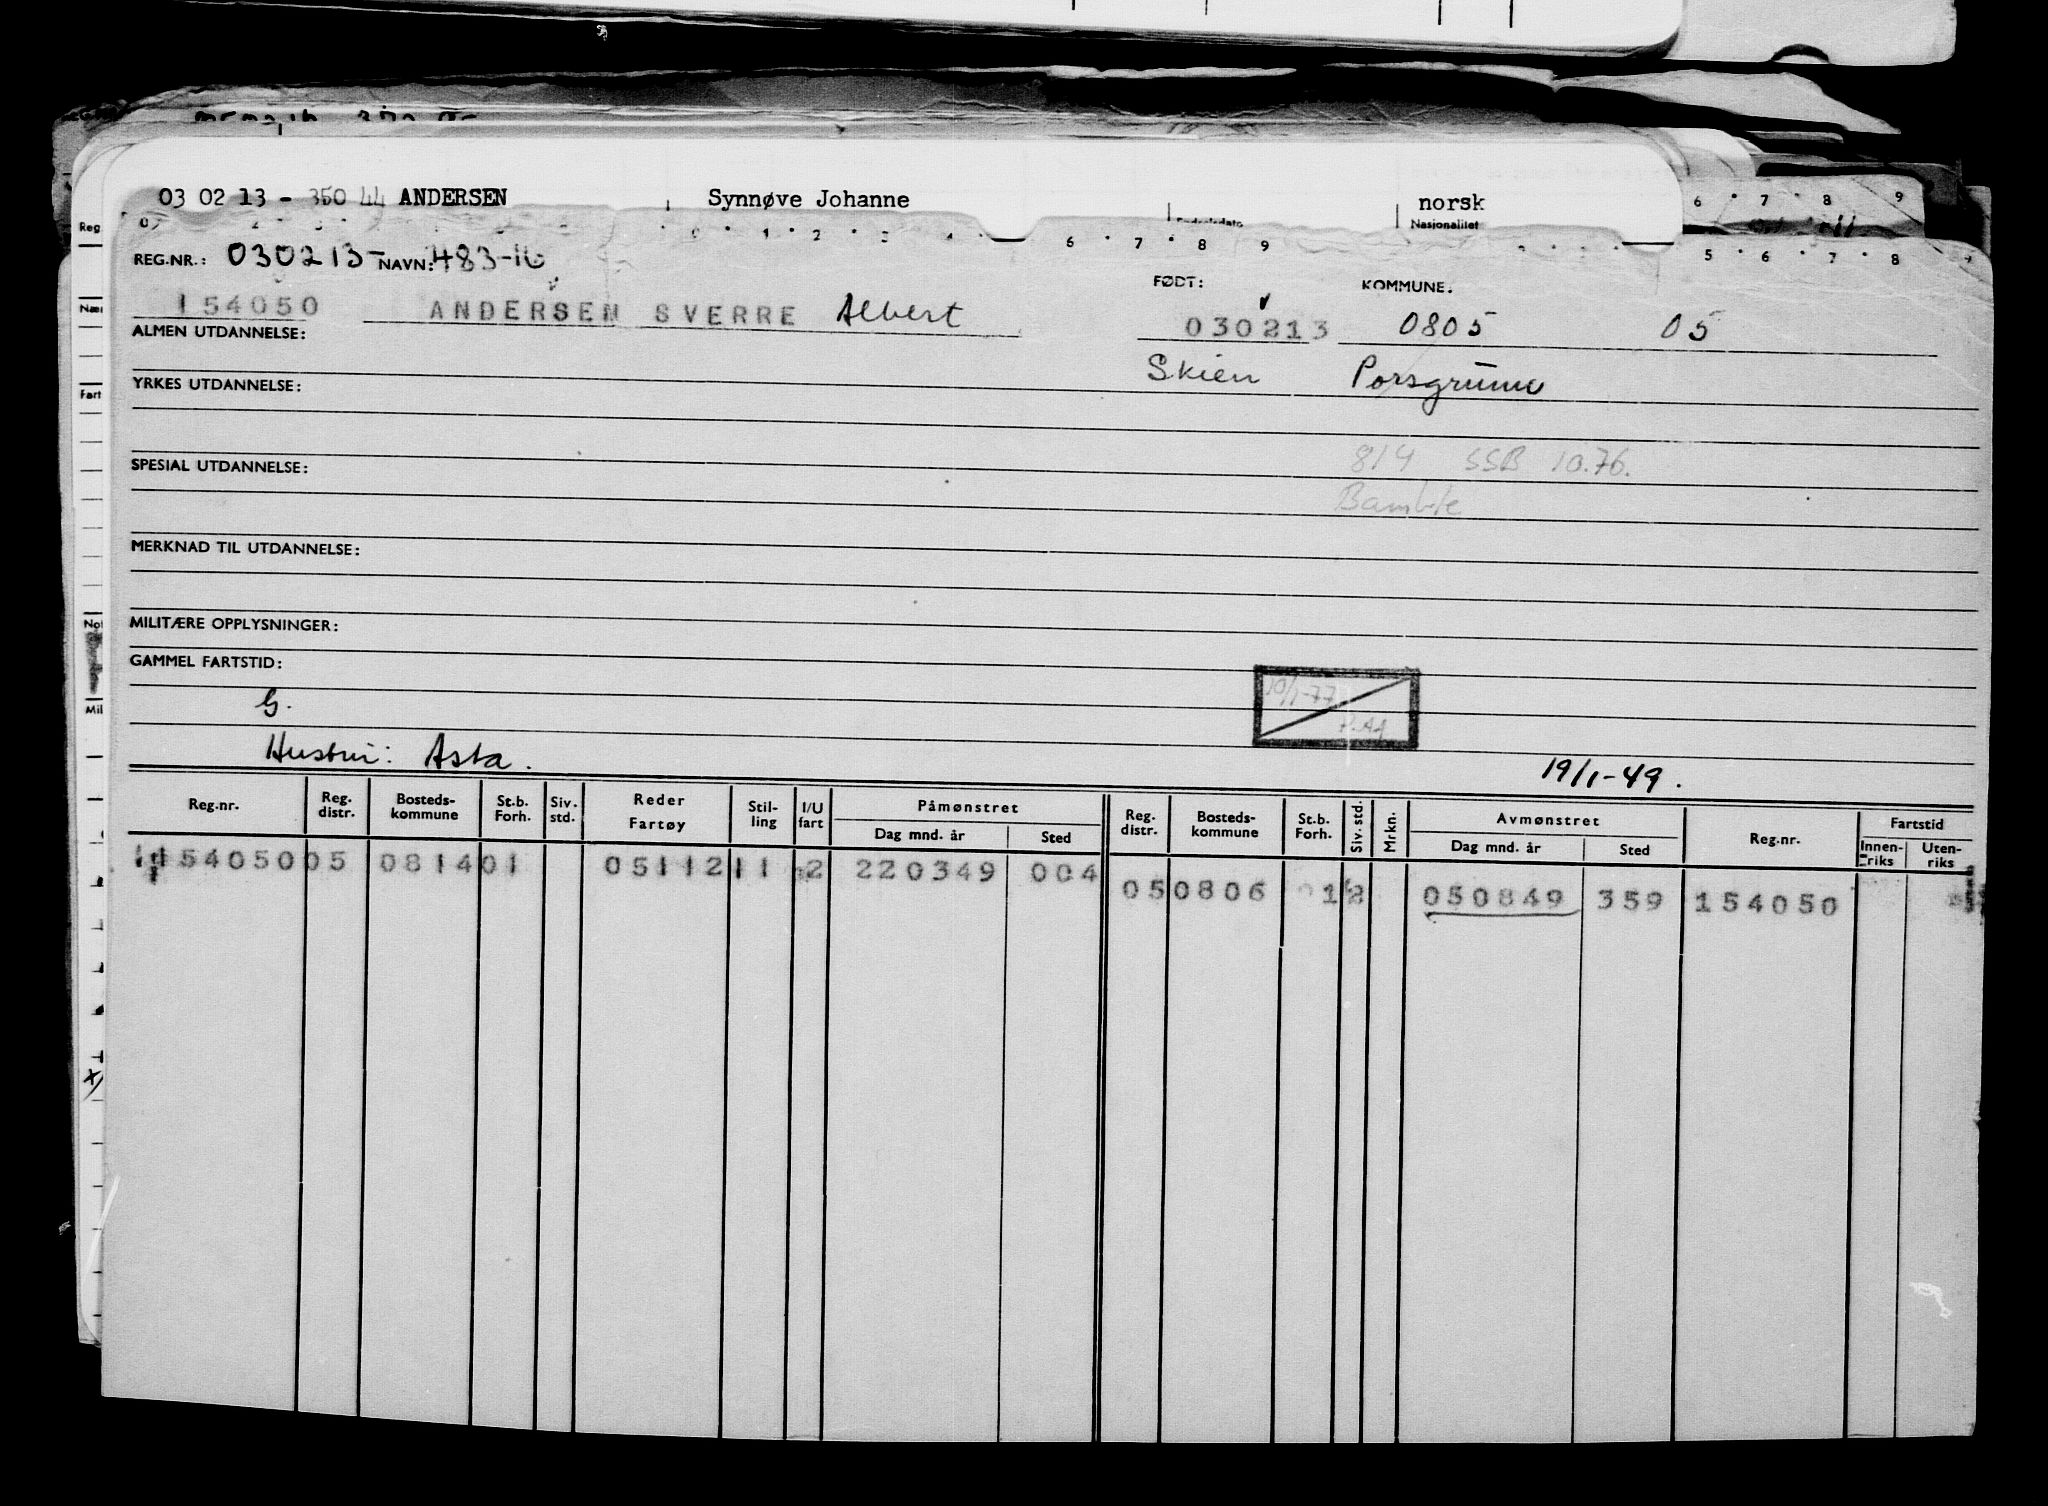 03 02 13 - 350 44 ANDERSEN Synnøve Johanne norsk
Nasjonalitet
6 7 8 9
Reg
REG.NR.: 030213- NAVN: 483-16
6 7 8 9 5 6 7 8
FØDT: KOMMUNE.
154050 ANDERSEN SVERRE Albert 030213 0805 05
ALMEN UTDANNELSE:
Skien Porsgrunn
YRKES UTDANNELSE:
Fart
814 SSB 10.76.
SPESIAL UTDANNELSE:
Bamble
MERKNAD TIL UTDANNELSE:
MILITÆRE OPPLYSNINGER:
GAMMEL FARTSTID:
G.
10/1-77
Mil
Hustru: Asta.
19/1-49.
Reg.nr. Reg. distr. Bosteds-kommune St.b. Forh. Siv. std. Reder Fartøy Stil-ling I/U fart Påmønstret Dag mnd. år Sted Reg. distr. Bosteds-kommune St.b. Forh. Siv. std. Mrkn. Avmønstret Dag mnd. år Sted Reg.nr. Fartstid Innen-riks Uten-riks
154050 05 0814 01 05112 11 2 220349 004 05 0806 01 2 050849 359 154050